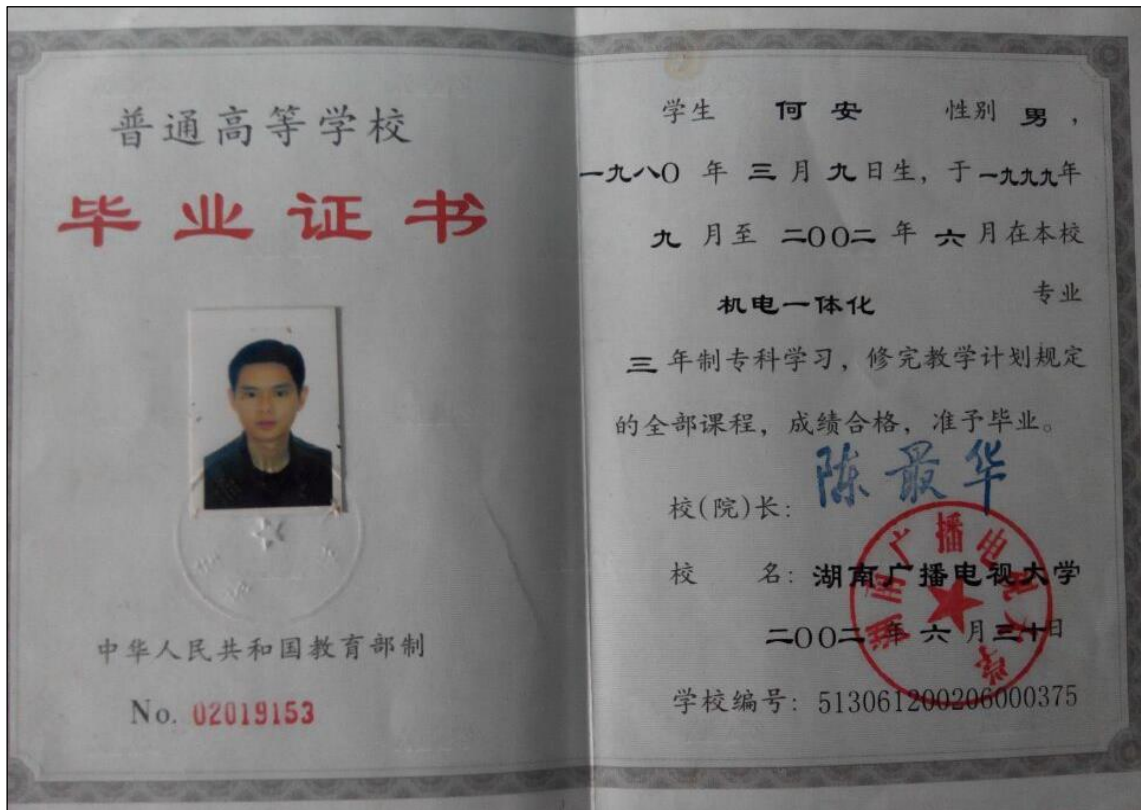 普通高等学校
毕业证书
中华人民共和国教育部制
No. 02019153
学生 何安 性别 男，
一九八〇 年 三 月 九 日生，于 一九九九 年
九 月至 二〇〇二 年 六 月在本校
机电一体化 专业
三 年制专科学习，修完教学计划规定
的全部课程，成绩合格，准予毕业。
校(院)长：陈最华
校 名：湖南广播电视大学
二〇〇二 年 六 月 三十 日
学校编号：513061200206000375
湖南广播电视大学